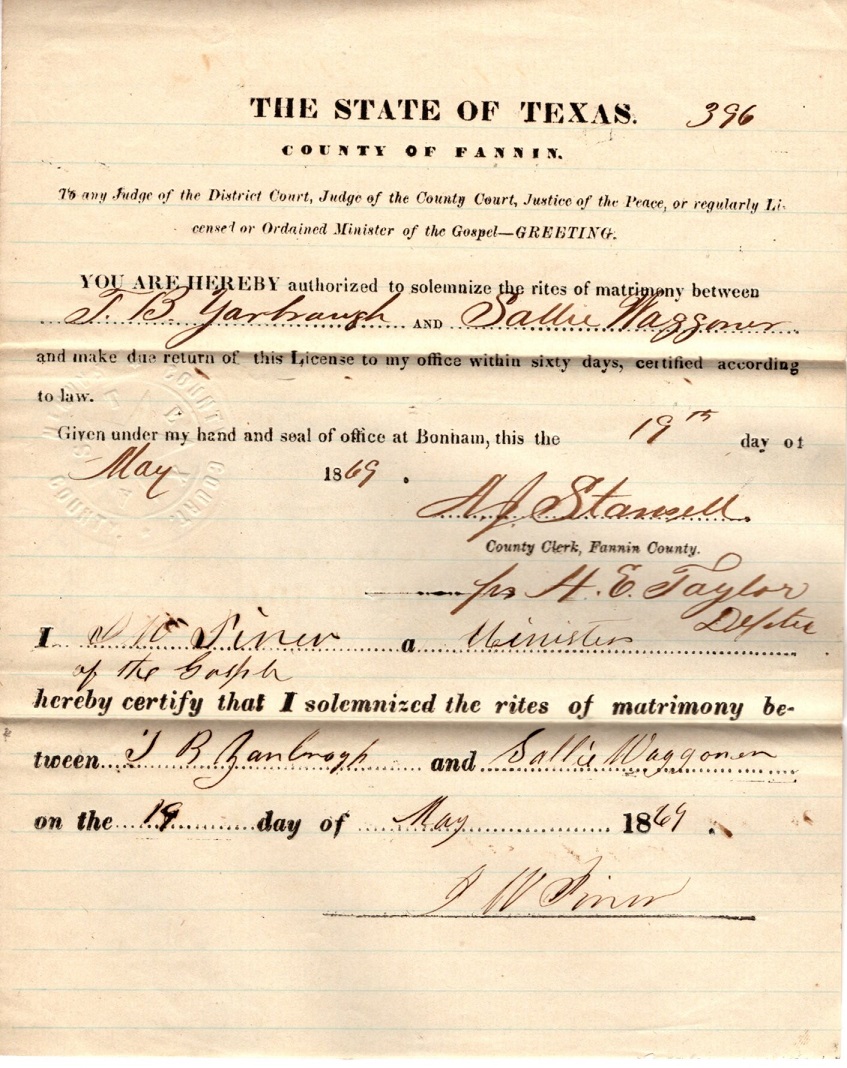 THE STATE OF TEXAS. 396
COUNTY OF FANNIN.
To any Judge of the District Court, Judge of the County Court, Justice of the Peace, or regularly Li-
censed or Ordained Minister of the Gospel—GREETING.
YOU ARE HEREBY authorized to solemnize the rites of matrimony between
T. B. Yarbraugh AND Sallie Waggoner
and make due return of this License to my office within sixty days, certified according
to law.
Given under my hand and seal of office at Bonham, this the 19th day of
May 1869.
A J Stansell
County Clerk, Fannin County.
H. E. Taylor
I J W Piner a Minister
of the Gosple
hereby certify that I solemnized the rites of matrimony be-
tween T B Yarbrogh and Sallie Waggoner
on the 19 day of May 1869.
J W Piner